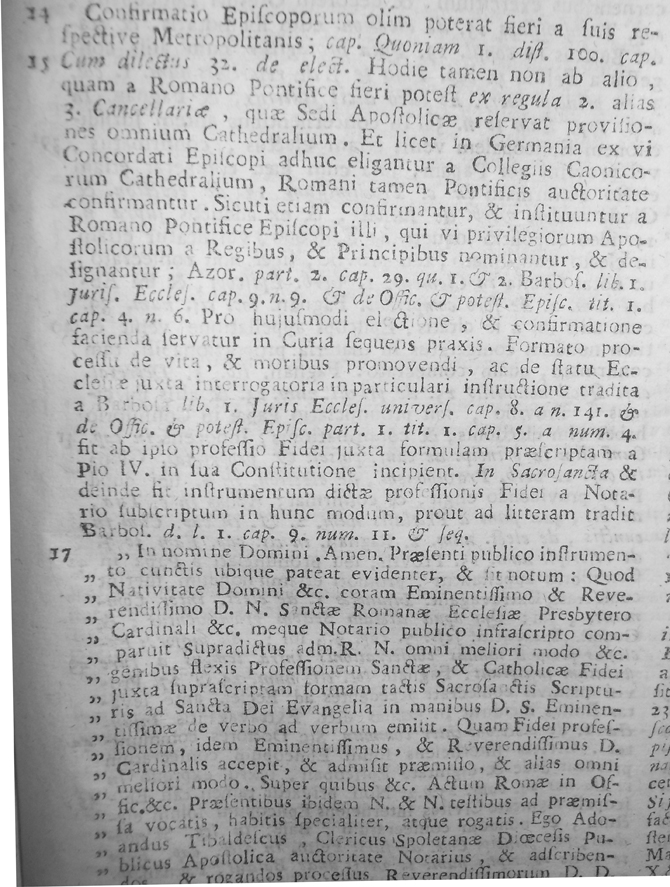 14 Confirmatio Epiſcoporum olim poterat fieri a ſuis re-
ſpective Metropolitanis; cap. Quoniam 1. diſt. 100. cap.
15 Cum dilectus 32. de elect. Hodie tamen non ab alio,
quam a Romano Pontifice fieri poteſt ex regula 2. alias
3. Cancellariæ, quæ Sedi Apoſtolicæ reſervat proviſio-
nes omnium Cathedralium. Et licet in Germania ex vi
Concordati Epiſcopi adhuc eligantur a Collegiis Caonico-
rum Cathedralium, Romani tamen Pontificis auctoritate
confirmantur. Sicuti etiam confirmantur, & inſtituuntur a
Romano Pontifice Epiſcopi illi, qui vi privilegiorum Apo-
ſtolicorum a Regibus, & Principibus nominantur, & de-
ſignantur; Azor. part. 2. cap. 29. qu. 1. & 2. Barboſ. lib. 1.
Juriſ. Eccleſ. cap. 9. n. 9. & de Offic. & poteſt. Epiſc. tit. 1.
cap. 4. n. 6. Pro hujuſmodi electione, & confirmatione
facienda ſervatur in Curia ſequens praxis. Formato pro-
ceſſu de vita, & moribus promovendi, ac de ſtatu Ec-
cleſiæ juxta interrogatoria in particulari inſtructione tradita
a Barboſa lib. 1. Juris Eccleſ. univerſ. cap. 8. a n. 141. &
de Offic. & poteſt. Epiſc. part. 1. tit. 1. cap. 5. a num. 4.
fit ab ipſo profeſſio Fidei juxta formulam præſcriptam a
Pio IV. in ſua Conſtitutione incipient. In Sacroſancta &
deinde fit inſtrumentum dictæ profeſſionis Fidei a Nota-
rio ſubſcriptum in hunc modum, prout ad litteram tradit
Barboſ. d. l. 1. cap. 9. num. 11. & ſeq.
17 „ In nomine Domini. Amen. Præſenti publico inſtrumen-
„ to cunctis ubique pateat evidenter, & ſit notum: Quod
„ Nativitate Domini &c. coram Eminentiſſimo & Reve-
„ rendiſſimo D. N. Sanctæ Romanæ Eccleſiæ Presbytero
„ Cardinali &c. meque Notario publico infraſcripto com-
„ paruit Supradictus adm. R. N. omni meliori modo &c.
„ genibus flexis Profeſſionem Sanctæ, & Catholicæ Fidei
„ juxta ſupraſcriptam formam tactis Sacroſanctis Scriptu-
„ ris ad Sancta Dei Evangelia in manibus D. S. Eminen-
„ tiſſimæ de verbo ad verbum emiſit. Quam Fidei profeſ-
„ ſionem, idem Eminentiſſimus, & Reverendiſſimus D.
„ Cardinalis accepit, & admiſit præmiſſo, & alias omni
„ meliori modo. Super quibus &c. Actum Romæ in Of-
„ fic. &c. Præſentibus ibidem N. & N. teſtibus ad præmiſ-
„ ſa vocatis, habitis ſpecialiter, atque rogatis. Ego Ado-
„ andus Tibaldeſcus, Clericus Spoletanæ Diœceſis Pu-
„ blicus Apoſtolica auctoritate Notarius, & adſcriben-
„ dos & rogandos proceſſus Reverendiſſimorum D. D.